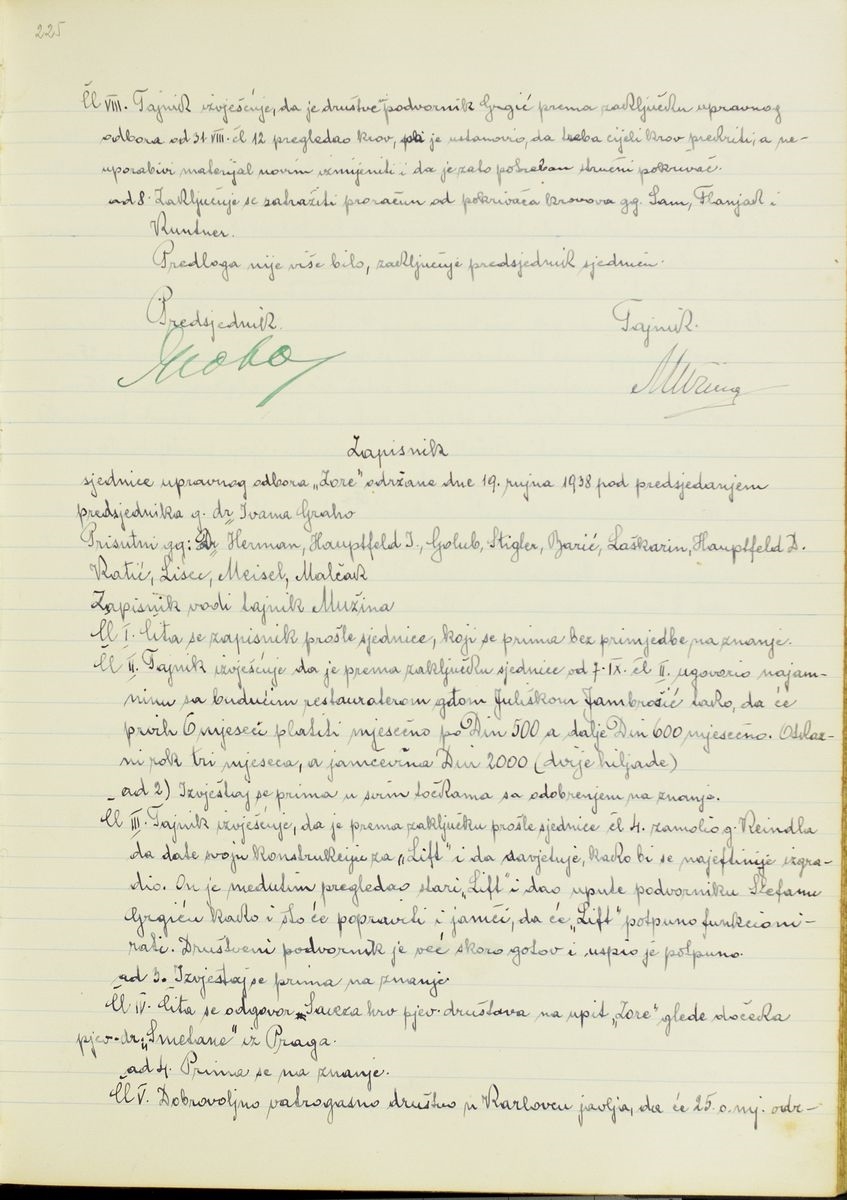 225
Čl VIII. Tajnik izvješćuje, da je društve podvornik Grgić prema zaključku upravnog
odbora od 31 VIII. čl 12 pregledao krov, je ustanovio, da treba cijeli krov prekriti, a ne-
uporabivi materijal novim izmijeniti i da je zato potreban stručni pokrivač.
ad 8. Zaključuje se zatražiti proračun od pokrivača krovova gg. Sam, Flanjak i
Kuntner.
Predloga nije više bilo, zaključuje predsjednik sjednicu.
Predsjednik. Tajnik.
Mužina
Zapisnik
sjednice upravnog odbora „Zore" održane dne 19. rujna 1938 pod predsjedanjem
predsjednika g. dr Ivama Graho
Prisutni gg: Dr Herman, Hauptfeld I., Golub, Stigler, Barić, Laškarin, Hauptfeld D.
Katić, Lisec, Meisel, Malčak
Zapisnik vodi tajnik Mužina
Čl I. Čita se zapisnik prošle sjednice, koji se prima bez primjedbe na znanje.
Čl II. Tajnik izvješćuje da je prema zaključku sjednice od 7. IX. čl II. ugovorio najam-
ninu sa budućim restauraterom gđom Juliškom Jambrošić tako, da će
prvih 6 mjeseci platiti mjesečno po Din 500 a dalje Din 600 mjesečno. Otkaz-
ni rok tri mjeseca, a jamčevna Din 2000 (dvije hiljade)
ad 2) Izvještaj se prima u svim točkama sa odobrenjem na znanje.
Čl III. Tajnik izvješćuje, da je prema zaključku prošle sjednice čl 4. zamolio g. Reindla
da dade svoju konstrukciju za „Lift" i da savjetuje, kako bi se najeftinije izgra-
dio. On je međutim pregledao stari „Lift" i dao upute podvorniku Stefanu
Grgiću kako i što će popraviti i jamči, da će „Lift" potpuno funkcioni-
rati. Društveni podvornik je već skoro gotov i uspio je potpuno.
ad 3. Izvještaj se prima na znanje.
Čl IV. Čita se odgovor „Saveza hrv pjev. društava na upit „Zore" glede dočeka
pjev. dr. „Smetane" iz Praga.
ad 4. Prima se na znanje.
Čl V. Dobrovoljno vatrogasno društvo u Karlovcu javlja, da će 25. o. mj. odr-